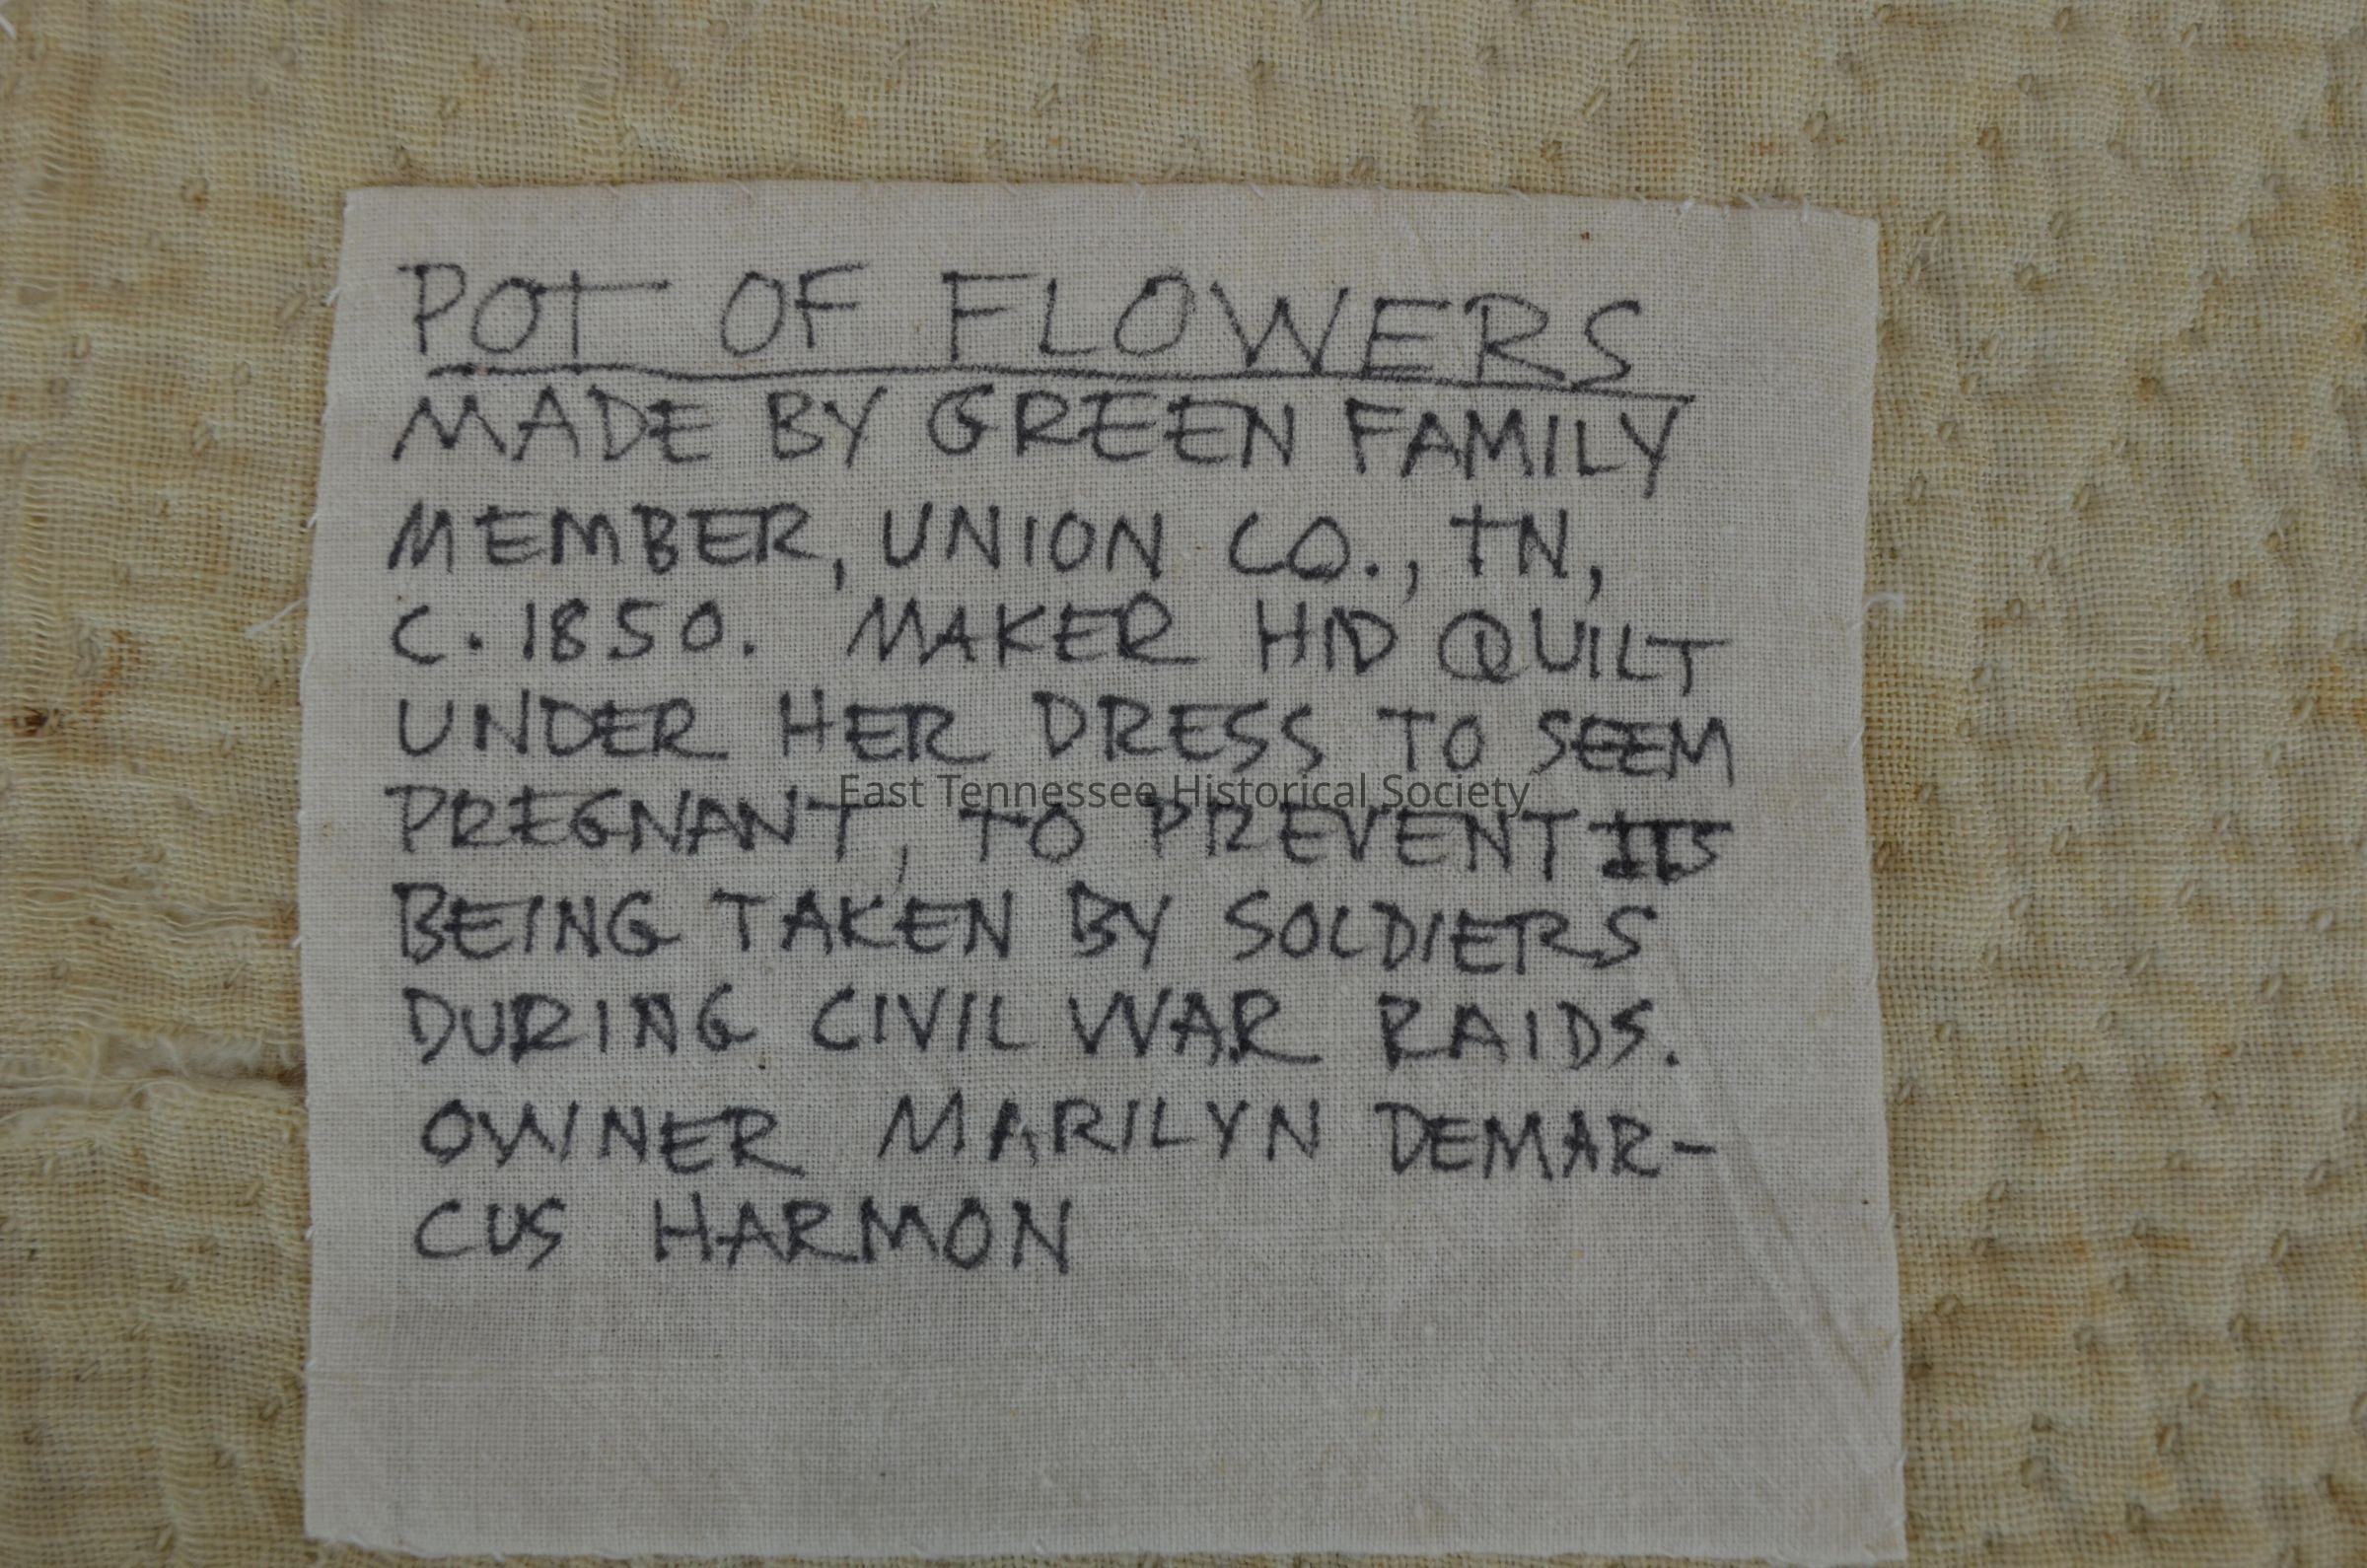 POT OF FLOWERS
MADE BY GREEN FAMILY
MEMBER, UNION CO., TN,
C. 1850. MAKER HID QUILT
UNDER HER DRESS TO SEEM
East Tennessee Historical Society
PREGNANT, TO PREVENT ITS
BEING TAKEN BY SOLDIERS
DURING CIVIL WAR RAIDS.
OWNER MARILYN DEMAR-
CUS HARMON